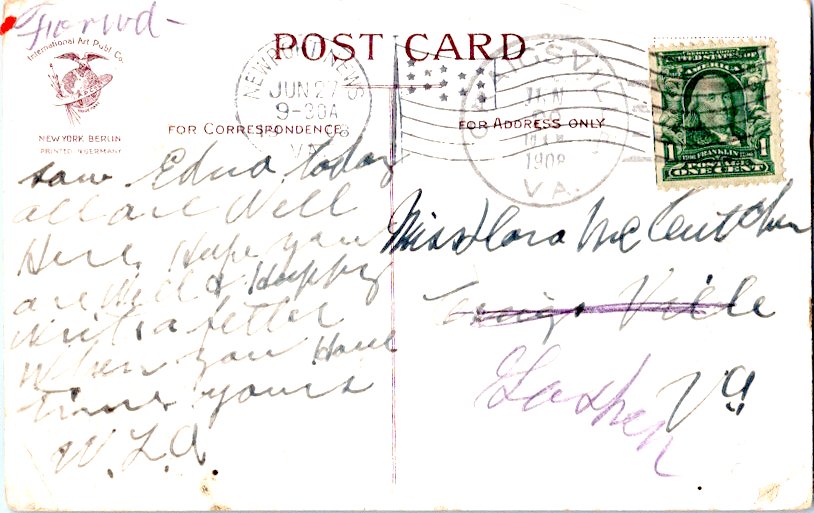 Forwd-
International Art Publ. Co.
NEW YORK BERLIN
PRINTED IN GERMANY
POST CARD
FOR CORRESPONDENCE
FOR ADDRESS ONLY
NEWPORT NEWS
JUN 27
9-30A
VA.
CRAIGSVILLE
JUN
1908
VA.
SERIES 1902
UNITED STATES OF
AMERICA
FRANKLIN
1 POSTAGE 1
ONE CENT
saw Edna today
all are Well
Here. Hope you
are Well & Happy
Write a letter
When you Have
time yours
W. L. A.
Miss Flora McCutchen
Craigs Ville
Goshen Va